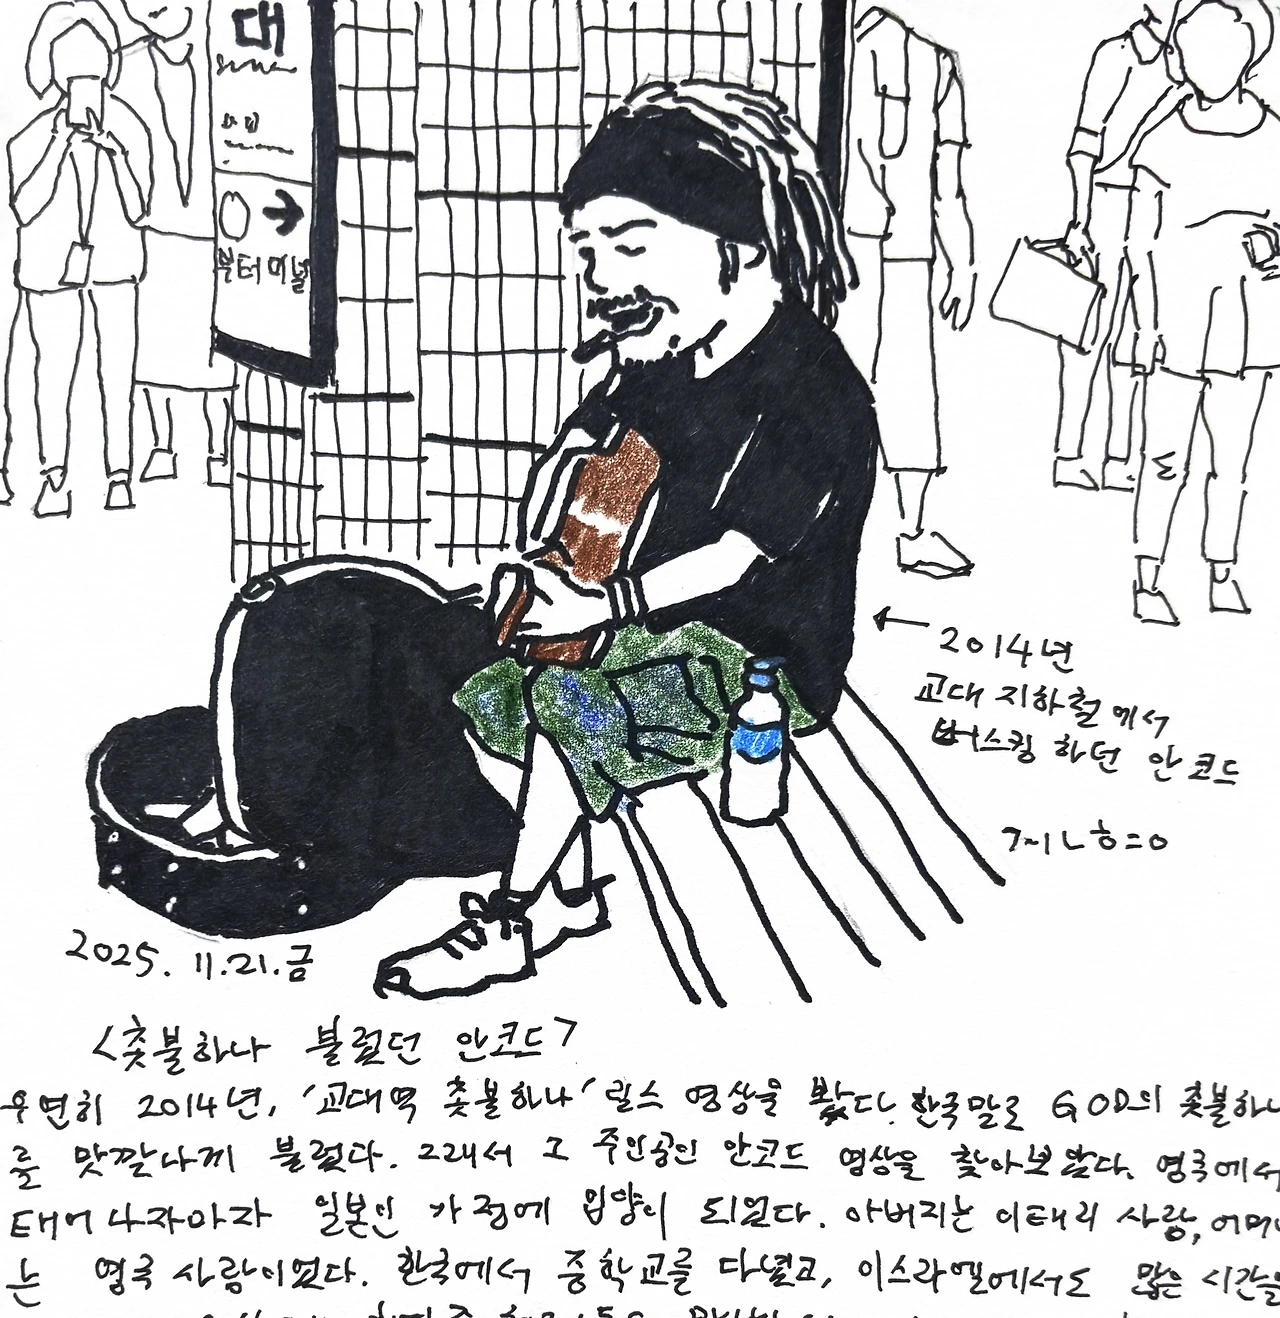 대
부터미널
2014년
교대 지하철에서
버스킹 하던 안코드
2025. 11.21.금
<촛불하나 불렀던 안코드>
우연히 2014년, '교대역 촛불하나' 릴스 영상을 봤다. 한국말로 GOD의 촛불하나
를 맛깔나게 불렀다. 그래서 그 주인공인 안코드 영상을 찾아보았다. 영국에서
태어나자마자 일본인 가정에 입양이 되었다. 아버지는 이태리 사람, 어머니
는 영국 사람이었다. 한국에서 중학교를 다녔고, 이스라엘에서도 많은 시간을